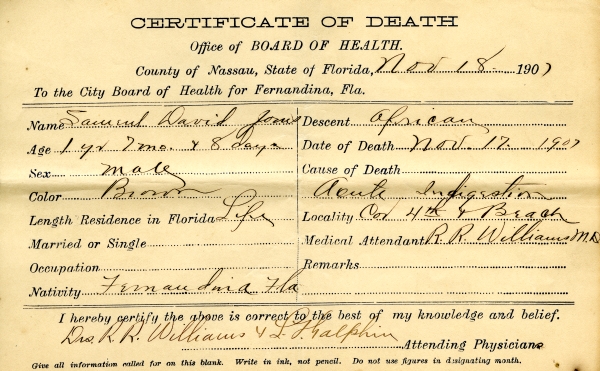 CERTIFICATE OF DEATH
Office of BOARD OF HEALTH.
County of Nassau, State of Florida, Nov 18 1907
To the City Board of Health for Fernandina, Fla.
Name Samuel David Jones
Age 1 yr 7 mo. & 8 days
Sex male
Color Brown
Length Residence in Florida Life
Married or Single
Occupation
Nativity Fernandina Fla
Descent African
Date of Death Nov. 17. 1907
Cause of Death
Acute Indigestion
Locality Cor 4th & Beach
Medical Attendant R. R. Williams M.D.
Remarks
I hereby certify the above is correct to the best of my knowledge and belief.
Drs. R. R. Williams & L. F. Galphin
Attending Physicians
Give all information called for on this blank. Write in ink, not pencil. Do not use figures in designating month.